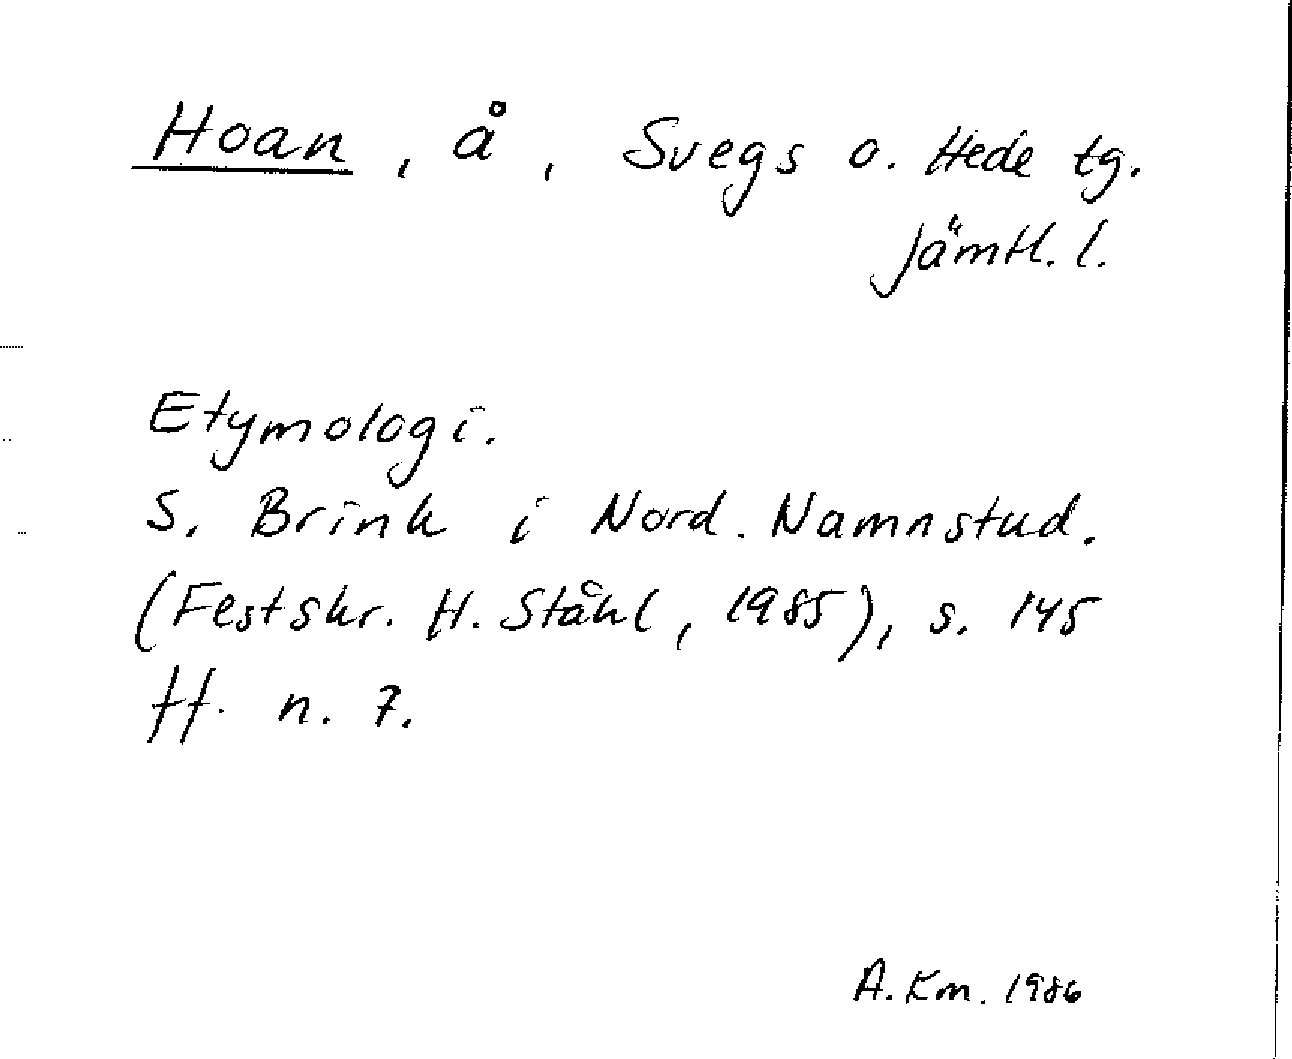 Hoan, å, Svegs o. Hede tg.
Jämtl. l.
Etymologi.
S. Brink i Nord. Namnstud.
(Festskr. H. Ståhl, 1985), s. 145
ff. n. 7.
A. Km. 1986